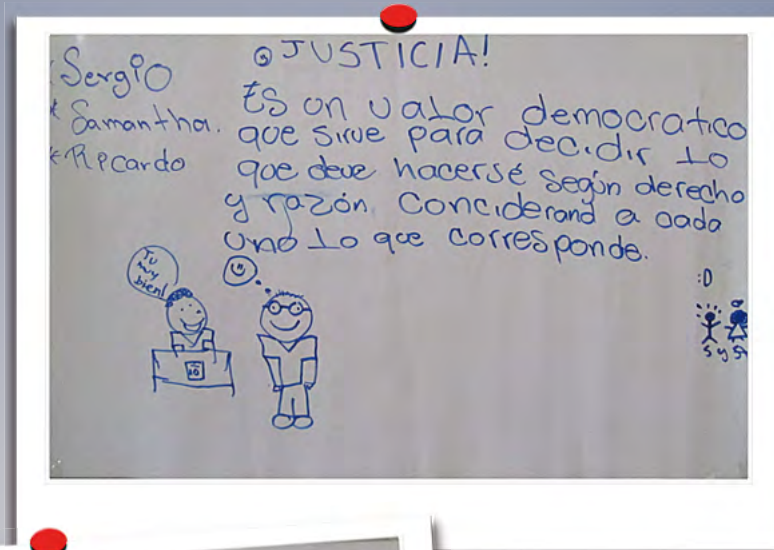 Sergio
* Samantha.
* Ricardo
JUSTICIA!
Es un valor democratico
que sirve para decidir lo
que deve hacerse según derecho
y razón. Conciderand a cada
uno lo que corresponde.
Tu
muy
bien!
10
:D
S y S